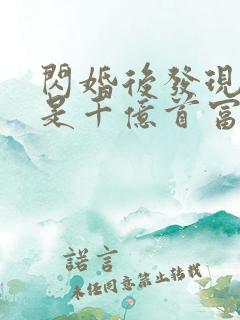 閃婚後發現
是千億首富
諾言
未經同意禁止轉載